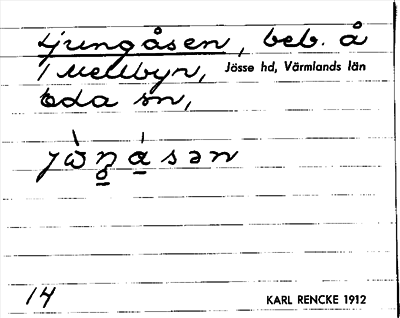 Ljungåsen, beb. å
1 Mellbyn, Jösse hd, Värmlands län
Eda sn,
14 KARL RENCKE 1912